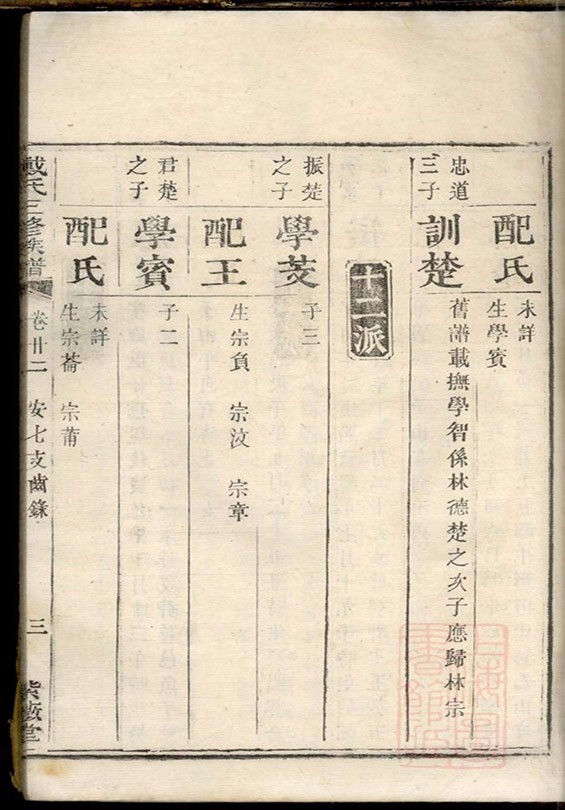 配氏
未詳
生學賓
忠道
三子
訓楚
舊譜載撫學智係林德楚之次子應歸林宗
十二派
振楚
之子
學茭
子三
配王
生宗負 宗汶 宗章
君楚
之子
學賓
子二
配氏
未詳
生宗崙 宗莆
戴氏三修族譜
卷廿二
安七支齒錄
三